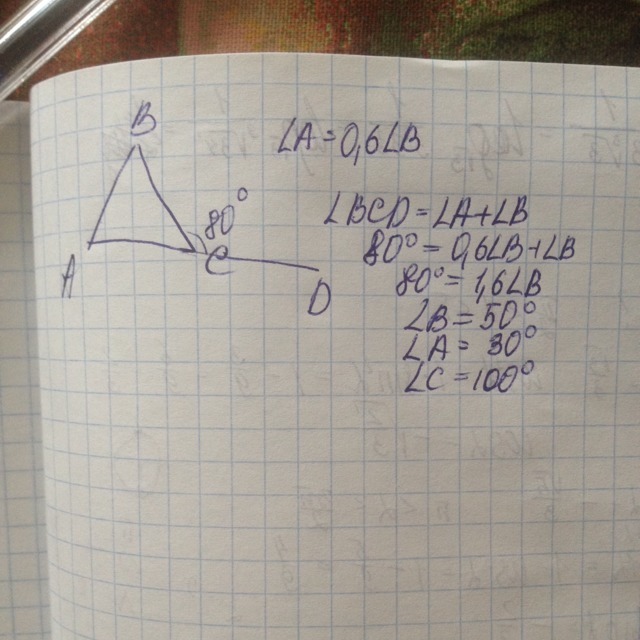 B
∠A = 0,6∠B
80°
A
C
D
∠BCD = ∠A + ∠B
80° = 0,6∠B + ∠B
80° = 1,6∠B
∠B = 50°
∠A = 30°
∠C = 100°